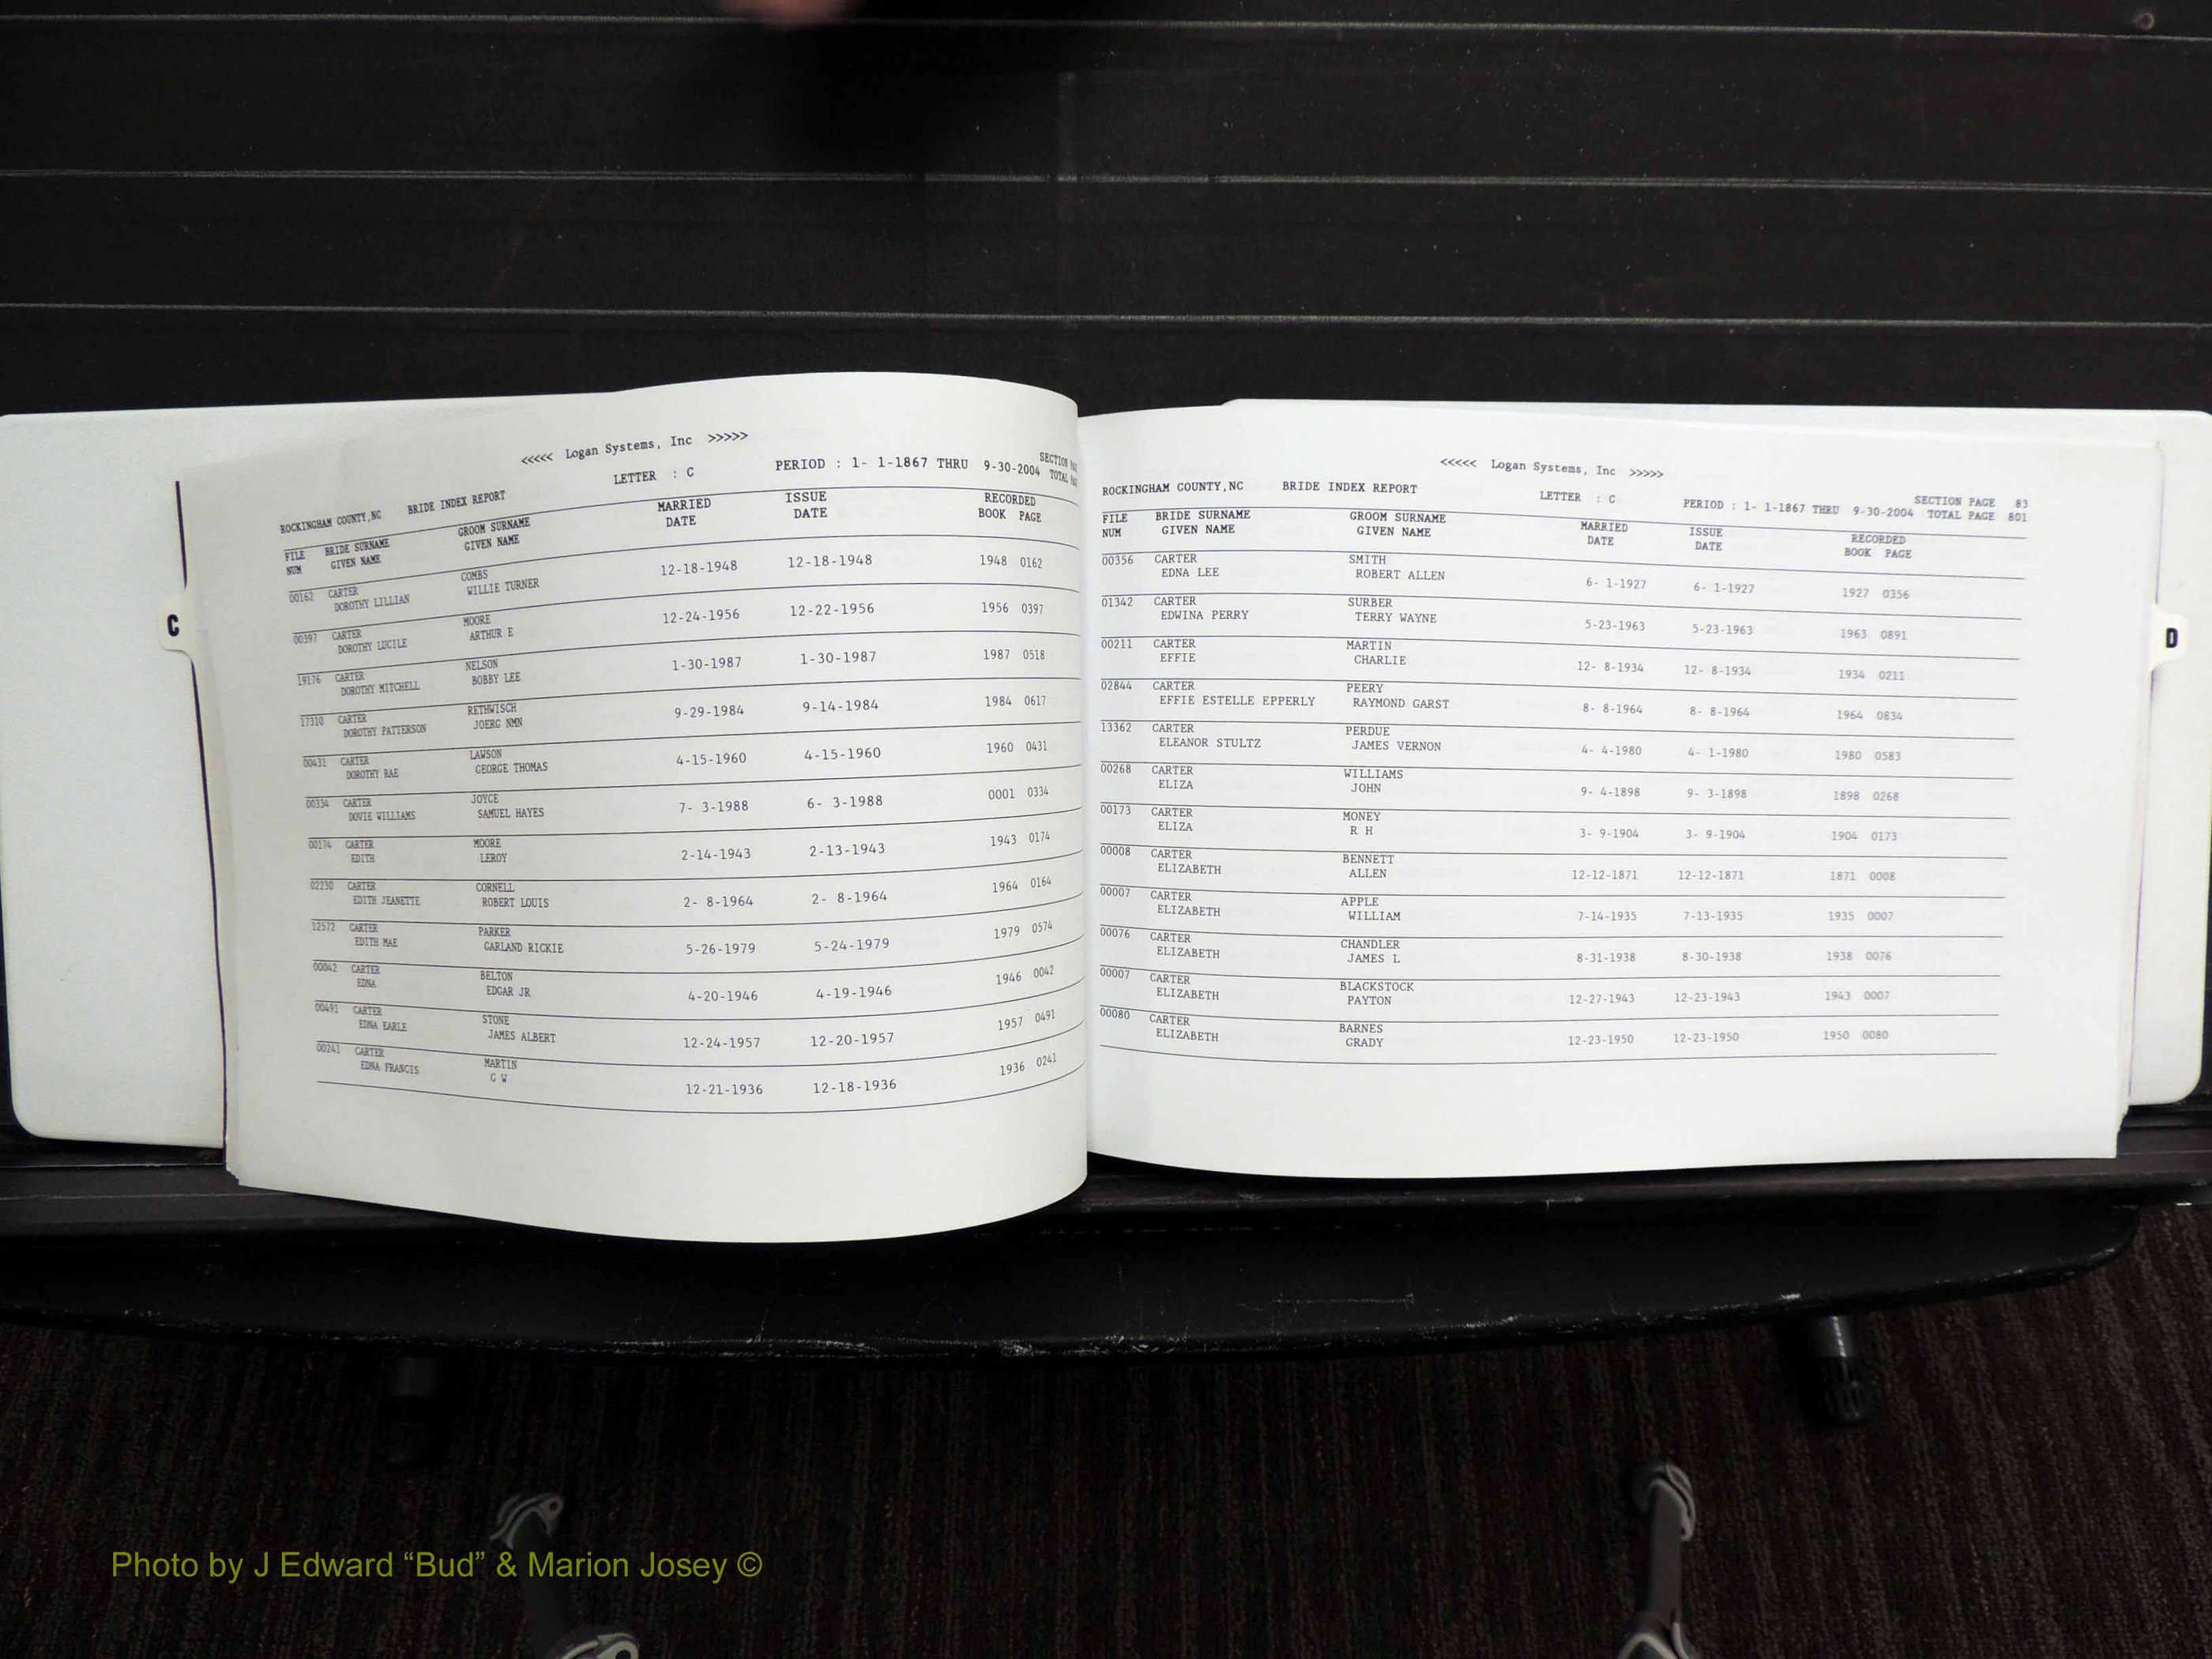 <<<<< Logan Systems, Inc >>>>>
ROCKINGHAM COUNTY,NC BRIDE INDEX REPORT LETTER : C PERIOD : 1- 1-1867 THRU 9-30-2004 SECTION
TOTAL
FILE BRIDE SURNAME GROOM SURNAME MARRIED ISSUE RECORDED
NUM GIVEN NAME GIVEN NAME DATE DATE BOOK PAGE
00162 CARTER COMBS 12-18-1948 12-18-1948 1948 0162
DOROTHY LILLIAN WILLIE TURNER
00397 CARTER MOORE 12-24-1956 12-22-1956 1956 0397
DOROTHY LUCILE ARTHUR E
19176 CARTER NELSON 1-30-1987 1-30-1987 1987 0518
DOROTHY MITCHELL BOBBY LEE
17310 CARTER RETHWISCH 9-29-1984 9-14-1984 1984 0617
DOROTHY PATTERSON JOERG NMN
00431 CARTER LAWSON 4-15-1960 4-15-1960 1960 0431
DOROTHY RAE GEORGE THOMAS
00334 CARTER JOYCE 7- 3-1988 6- 3-1988 0001 0334
DOVIE WILLIAMS SAMUEL HAYES
00174 CARTER MOORE 2-14-1943 2-13-1943 1943 0174
EDITH LEROY
02230 CARTER CORNELL 2- 8-1964 2- 8-1964 1964 0164
EDITH JEANETTE ROBERT LOUIS
12572 CARTER PARKER 5-26-1979 5-24-1979 1979 0574
EDITH MAE GARLAND RICKIE
00042 CARTER BELTON 4-20-1946 4-19-1946 1946 0042
EDNA EDGAR JR
00491 CARTER STONE 12-24-1957 12-20-1957 1957 0491
EDNA EARLE JAMES ALBERT
00241 CARTER MARTIN 12-21-1936 12-18-1936 1936 0241
EDNA FRANCIS G W
C
<<<<< Logan Systems, Inc >>>>>
ROCKINGHAM COUNTY,NC BRIDE INDEX REPORT LETTER : C PERIOD : 1- 1-1867 THRU 9-30-2004 SECTION PAGE 83
TOTAL PAGE 801
FILE BRIDE SURNAME GROOM SURNAME MARRIED ISSUE RECORDED
NUM GIVEN NAME GIVEN NAME DATE DATE BOOK PAGE
00356 CARTER SMITH 6- 1-1927 6- 1-1927 1927 0356
EDNA LEE ROBERT ALLEN
01342 CARTER SURBER 5-23-1963 5-23-1963 1963 0891
EDWINA PERRY TERRY WAYNE
00211 CARTER MARTIN 12- 8-1934 12- 8-1934 1934 0211
EFFIE CHARLIE
02844 CARTER PEERY 8- 8-1964 8- 8-1964 1964 0834
EFFIE ESTELLE EPPERLY RAYMOND GARST
13362 CARTER PERDUE 4- 4-1980 4- 1-1980 1980 0583
ELEANOR STULTZ JAMES VERNON
00268 CARTER WILLIAMS 9- 4-1898 9- 3-1898 1898 0268
ELIZA JOHN
00173 CARTER MONEY 3- 9-1904 3- 9-1904 1904 0173
ELIZA R H
00008 CARTER BENNETT 12-12-1871 12-12-1871 1871 0008
ELIZABETH ALLEN
00007 CARTER APPLE 7-14-1935 7-13-1935 1935 0007
ELIZABETH WILLIAM
00076 CARTER CHANDLER 8-31-1938 8-30-1938 1938 0076
ELIZABETH JAMES L
00007 CARTER BLACKSTOCK 12-27-1943 12-23-1943 1943 0007
ELIZABETH PAYTON
00080 CARTER BARNES 12-23-1950 12-23-1950 1950 0080
ELIZABETH GRADY
D
Photo by J Edward “Bud” & Marion Josey ©